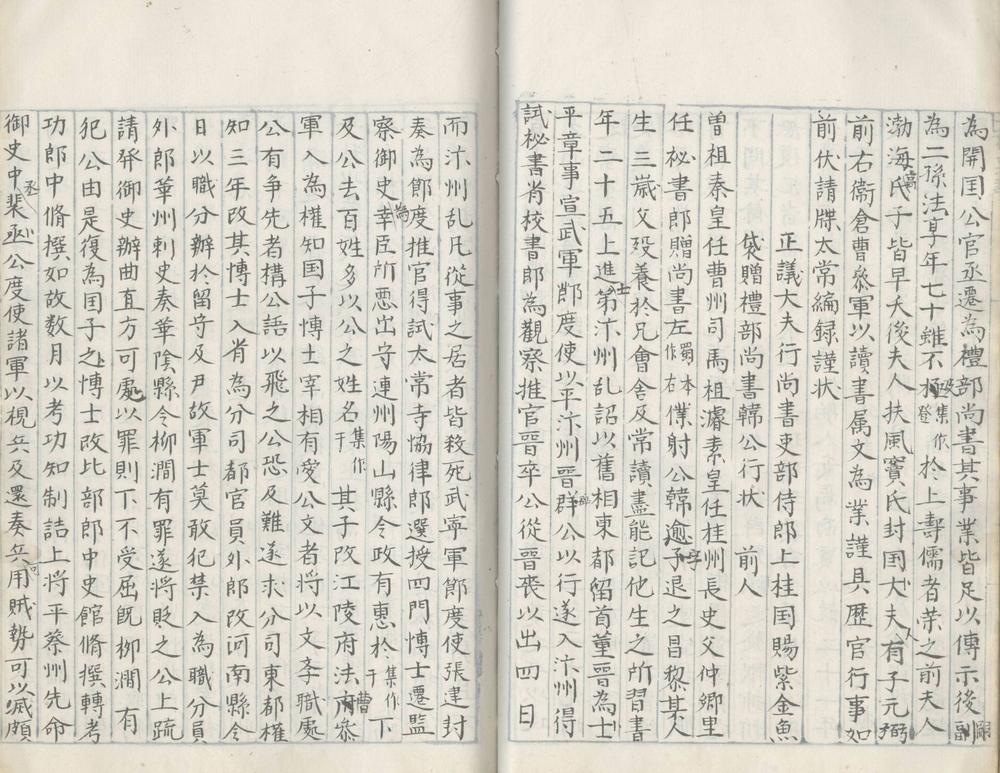 為開国公官丞遷為禮部尚書其事業皆足以傳示後副嗣
為二孫法享年七十雖不極極集作登於上壽儒者荣之前夫人
渤海氏高子皆早夭後夫人扶風竇氏封国犬夫人有子元弼
前右衛倉曹叅軍以讀書属文為業謹具歴官行事如
前伏請牒太常編録謹状
正議大夫行尚書吏部侍郎上桂国賜紫金魚
袋贈禮部尚書韓公行状 前人
曽祖秦皇任曹州司馬祖濬素皇任桂州長史父仲卿皇
任秘書郎贈尚書左蜀本作右僕射公韓愈子字退之昌黎某人
生三嵗父歿養於兄會舎及常讀盡能記他生之所習書
年二十五上進士第汴州乱詔以舊相東都留首董晉為士
平章事宣武軍郎度使以平汴州晉群辟公以行遂入汴州得
試秘書肖校書郎為觀察推官晉卒公從晉喪以出四日
而汴州乱凡從事之居者皆殺死武寧軍節度使張建封
奏為節度推官得試太常寺協律郎選授四門博士遷監
察御史為幸臣所悪出守連州陽山縣令政有惠於集作于下
及公去百姓多以公之姓名集作于其子改江陵府法府曹叅
軍入為權知国子慱士宰相有愛公文者將以文李職處
公有争先者構公語以飛之公恐及難遂求分司東都權
知三年改其博士入肖為分司都官員外郎改河南縣令
日以職分辦於留守及尹故軍士莫敢犯禁入為職分員
外郎華州刺史奏華陰縣令柳澗有罪遂將貶之公上疏
請發御史辦曲直方可處以罪則下不受屈旣柳澗有
犯公由是復為国子之上博士改比部郎中史館脩撰轉考
功郎中脩撰如故数月以考功知制誥上將平蔡州先命
御史中丞裴丞公度使諸軍以視兵及還奏兵可用賊勢可以滅頗